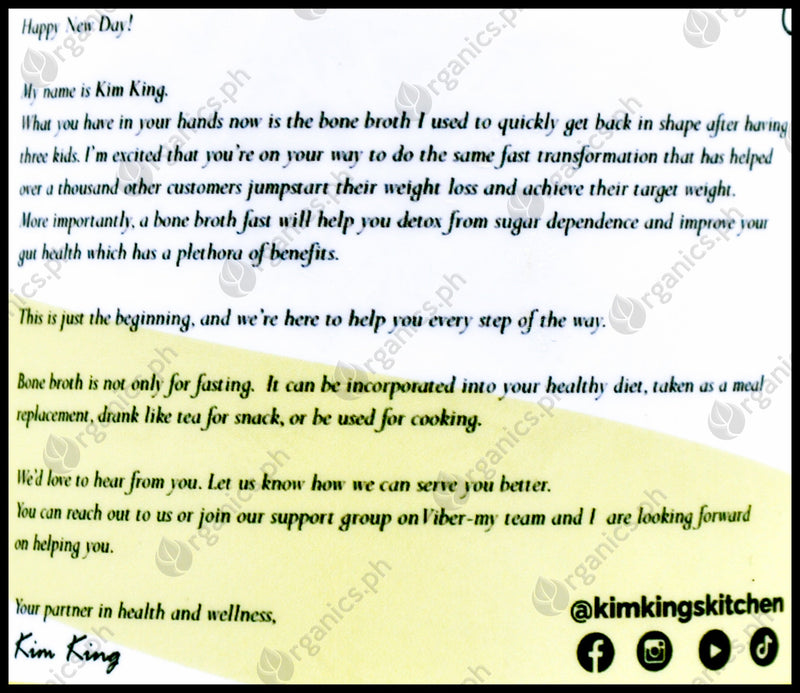 Happy New Day!
My name is Kim King.
What you have in your hands now is the bone broth I used to quickly get back in shape after having
three kids. I'm excited that you're on your way to do the same fast transformation that has helped
over a thousand other customers jumpstart their weight loss and achieve their target weight.
More importantly, a bone broth fast will help you detox from sugar dependence and improve your
gut health which has a plethora of benefits.
This is just the beginning, and we're here to help you every step of the way.
Bone broth is not only for fasting. It can be incorporated into your healthy diet, taken as a meal
replacement, drank like tea for snack, or be used for cooking.
We'd love to hear from you. Let us know how we can serve you better.
You can reach out to us or join our support group on Viber-my team and I are looking forward
on helping you.
Your partner in health and wellness,
Kim King
@kimkingskitchen
Organics.ph